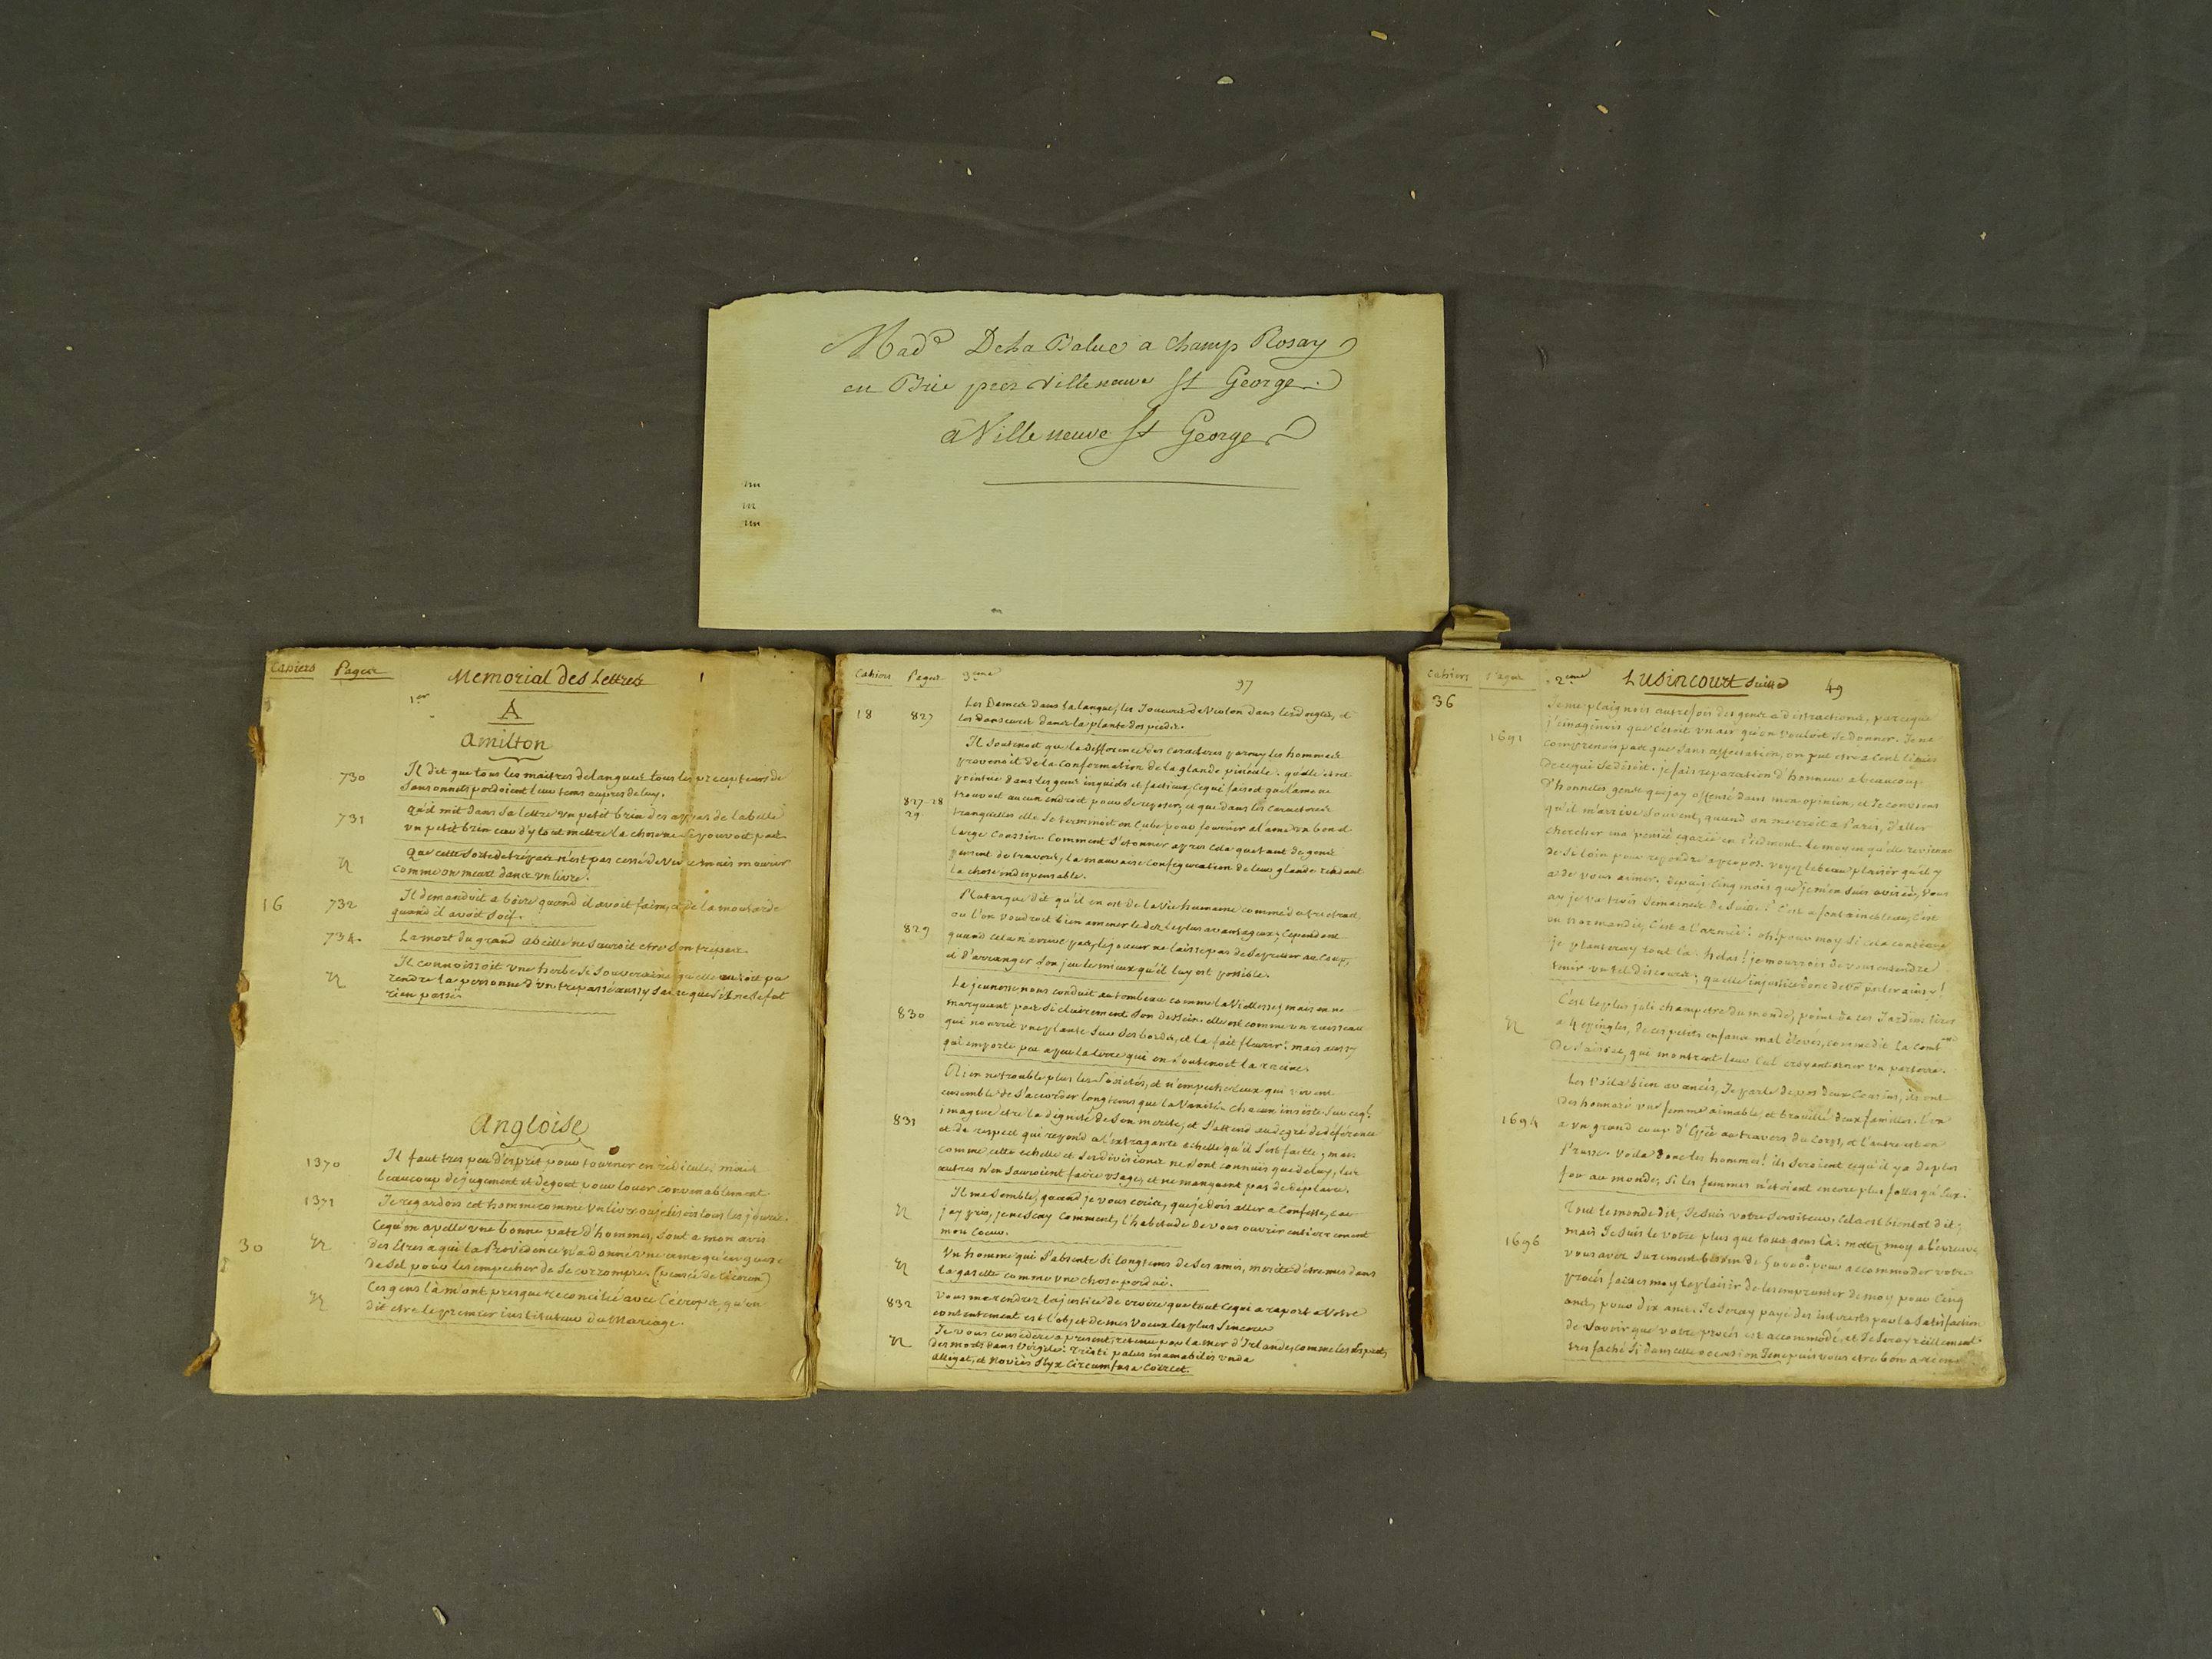 Mad.e De La Balue a Champ Rosay
en Brie près Villeneuve St George
à Villeneuve St George
Cahiers Pages Memorial des Lettres 1
1er
A
Amilton
730 Il dit que tous les maitres de langues tous les precepteurs de
Sansonnets perdoient leur tems aupres de luy.
731 qu'il mit dans sa lettre un petit brin des de labeille
un petit brin car d'y tout mettre la chose ne se pouvoit pas
n que cette sorte de trépas n'est pas cessé de vivre mais mourir
comme on meurt dans un livre.
16 732 Il demandoit a boire quand il avoit faim, et de la moutarde
quand il avoit soif.
734 La mort du grand abeille ne sauroit etre son trepas
n Il connoissoit une herbe si souveraine qu'elle auroit pu
rendre la personne d'un trepassé aussy saine que s'il ne se fut
rien passé
Angloise
1370 Il faut tres peu d'esprit pour tourner en ridicule, mais
beaucoup de jugement et de gout pour louer convenablement.
1371 Je regardois cet homme comme un livre où je lisois tous les jours.
30 n Ce qu'on apelle une bonne pate d'hommes, sont a mon avis
des Etres a qui la Providence n'a donné une ame qu'en guise
de sel pour les empecher de se corrompre. (pensée de Ciceron)
n Ces gens là m'ont presque reconcilié avec Cécrops, qu'on
dit etre le premier instituteur du Mariage.
Cahiers Pages 3eme
97
18 827 Les Dames dans la langue, les Joueurs de Violon dans les doigts, et
les danseurs dans la plante des pieds.
Il soutenoit que la difference des caracteres parmy les hommes
provenoit de la conformation de la glande pinéale. qu'elle etoit
pointue dans les gens inquiets et factieux, ce qui faisoit que l'ame ne
827-28 trouvoit aucun endroit pour se reposer, et que dans les caracteres
29 tranquilles elle se terminoit en cube pour fournir a l'ame un bon et
large coussin. Comment s'etonner apres cela que tant de gens
pensent de travers, la mauvaise configuration de leur glande rendant
la chose indispensable.
Plutarque dit qu'il en est de la Vie humaine comme du trictrac,
ou l'on voudroit bien amener le dez le plus avantageux; cependant
829 quand cela n'arrive pas, le joueur ne laisse pas de se prester au coup,
et d'arranger son jeu le mieux qu'il luy est possible.
La jeunesse nous conduit au tombeau comme la Vieillesse, mais en ne
marquant pas si clairement son dessein. elle est comme un ruisseau
830 qui nourrit une plante sur ses bords, et la fait fleurir: mais aussy
qui emporte peu a peu la terre qui en soutenoit la racine.
Rien ne trouble plus les Societés, et n'empeche ceux qui vivent
ensemble de s'accorder longtems que la Vanité. Chacun insiste sur ce qu'il
831 imagine etre la dignité de son merite, et s'attend au degré de déférence
et de respect qui repond a l'extragante echelle qu'il s'est faitte; mais
comme cette echelle et ses divisions ne sont connues que de luy, les
autres n'en sauroient faire usage, et ne manquent pas de deplaire.
Il me semble, quand je vous ecris, que je dois aller a confesse, car
n jay pris, je ne scay comment, l'habitude de vous ouvrir entierement
mon coeur.
n Un homme qui s'absente si longtems de ses amis, merite d'etre mis dans
la gazette comme une chose perdue.
832 Vous me rendrez la justice de croire que tout ce qui a raport a Votre
contentement est l'objet de mes Voeux les plus sinceres
n Je vous considere a present, retenu par la mer d'Irlande, comme les
des morts dans Virgile: Tristi palus inamabilis unda
alligat, et Novies Styx Circumfusa Coercet.
Cahiers Pages 2eme Lusincourt Suitte 49
36 Je me plaignois autrefois des gens a distractions, parceque
1691 j'imaginois que c'etoit un air qu'on vouloit se donner. Je ne
comprenois pas que sans affectation, on put etre a cent lieües
de ce qui se disoit. je fais reparation d'honneur a beaucoup
d'honnetes gens que jay offensé dans mon opinion, et Je conviens
qu'il m'arrive souvent, quand on me croit a Paris, d'aller
chercher ma pensée egarée en Piedmont. Le moyen qu'elle revienne
de si loin pour repondre a propos. voyez le beau plaisir qu'il y
a de vous aimer. depuis cinq mois que je m'en suis avisée, vous
ay je vu trois semaines de suitte? C'est a fontainebleau, c'est
en normandie, c'est a l'armée: oh! pour moy si cela continue
je planteray tout là. helas! je mourrois de vous entendre
tenir un tel discours; quelle injustice donc de vous parler ainsy!
n C'est le plus joli champetre du monde, point de ces Jardins tirés
a 4 epingles, de ces petits enfans mal élevés, comme dit la Comt.sse
de , qui montrent leur cul croyant orner un parterre.
Les Voila bien avancés, Je parle de vos deux Cousins, ils ont
1694 deshonoré une femme aimable, et brouillé deux familles. L'un
a un grand coup d'Epée au travers du corps, et l'autre est en
Prusse. Voila donc les hommes! ils seroient ce qu'il y a de plus
fou au monde, si les femmes n'etoient encore plus folles qu'eux.
Tout le monde dit, Je suis votre serviteur. Cela est bientot dit:
1696 mais Je suis le votre plus que tous gens là. mettez moy a l'epreuve
vous avez surement besoin de pour accommoder votre
procés faittes moy le plaisir de les emprunter de moy pour cinq
ans, pour dix ans. Je seray payé des interests par la satisfaction
de savoir que votre procés est accommodé, et Je seray réellement
tres faché si dans cette occasion Je ne puis vous etre bon a rien